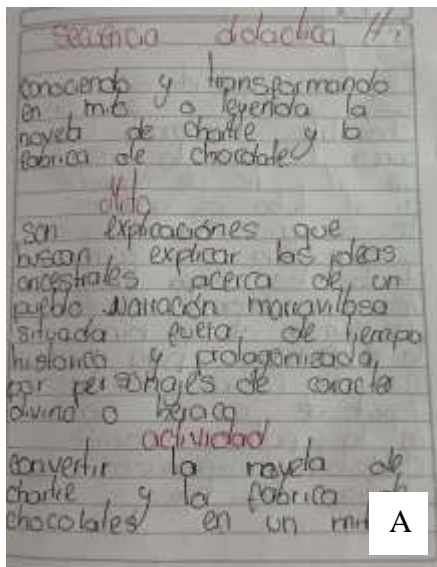 secuencia didactica #1
conociendo y transformando
en mito o leyenda la
novela de charlie y la
fabrica de chocolate
Mito
son explicaciones que
buscan explicar las ideas
ancestrales acerca de un
pueblo Narración maravillosa
situada fuera de tiempo
historico y protagonizada
por personajes de caracter
divino o
actividad
convertir la novela de
charlie y la fabrica
chocolates en un
A